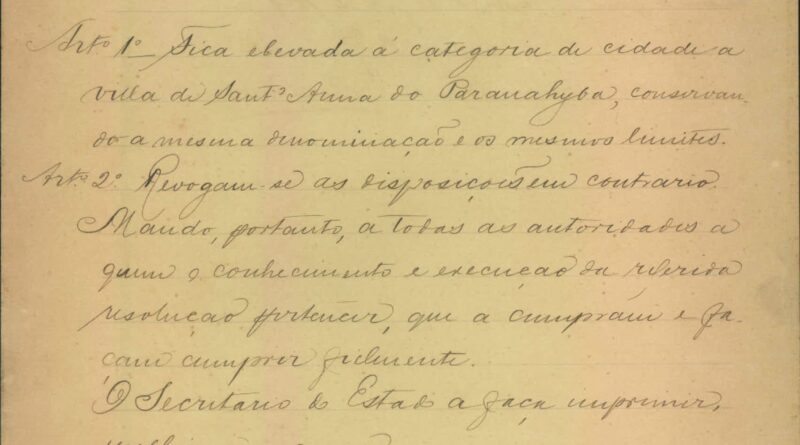 Artº 1º Fica elevada á categoria de cidade a
villa de Santª Anna do Paranahyba, conservan-
do a mesma denominação e os mesmos limites.
Artº 2º Revogam-se as disposições em contrario.
Mando, portanto, a todas as autoridades a
quem o conhecimento e execução da referida
resolução pertencer, que a cumpram e fa-
çam cumprir fielmente.
O Secretario do Estado a faça imprimir,